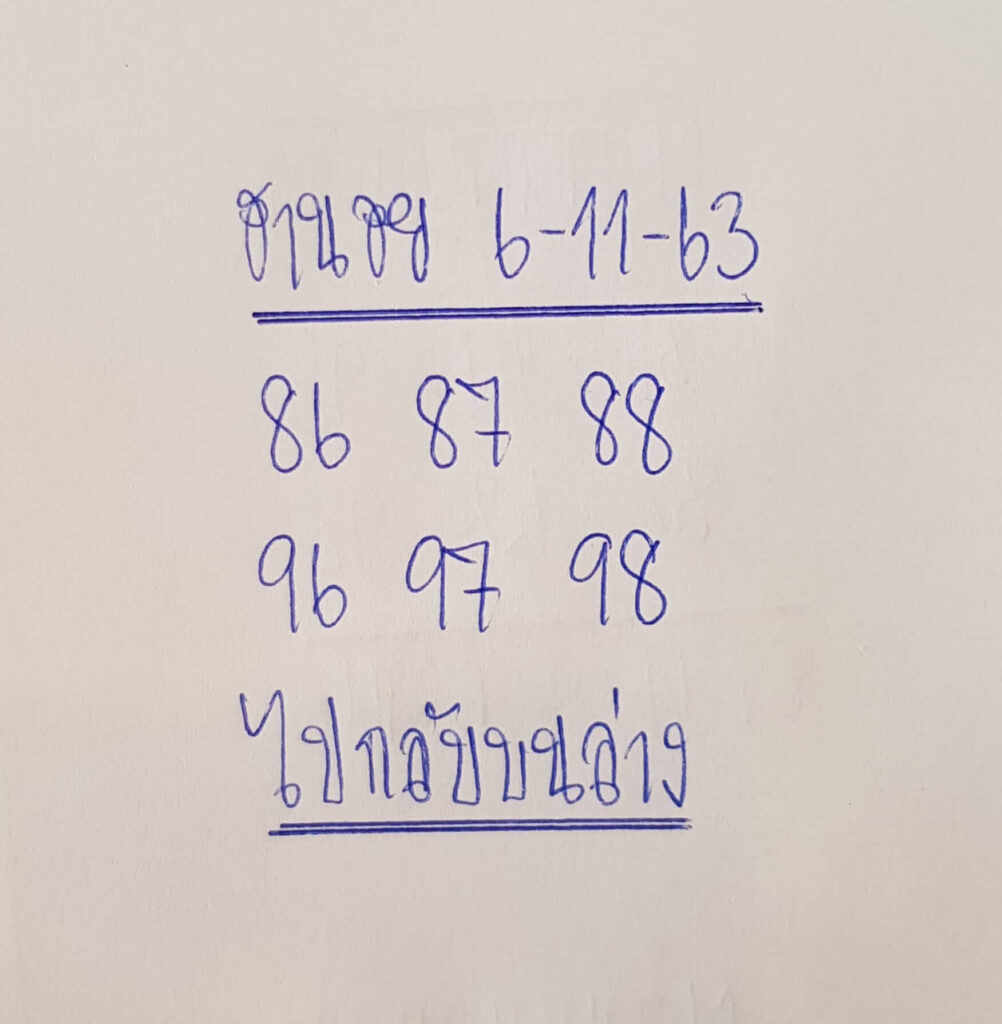 ฮานอย 6-11-63
86 87 88
96 97 98
ไปกลับบนล่าง